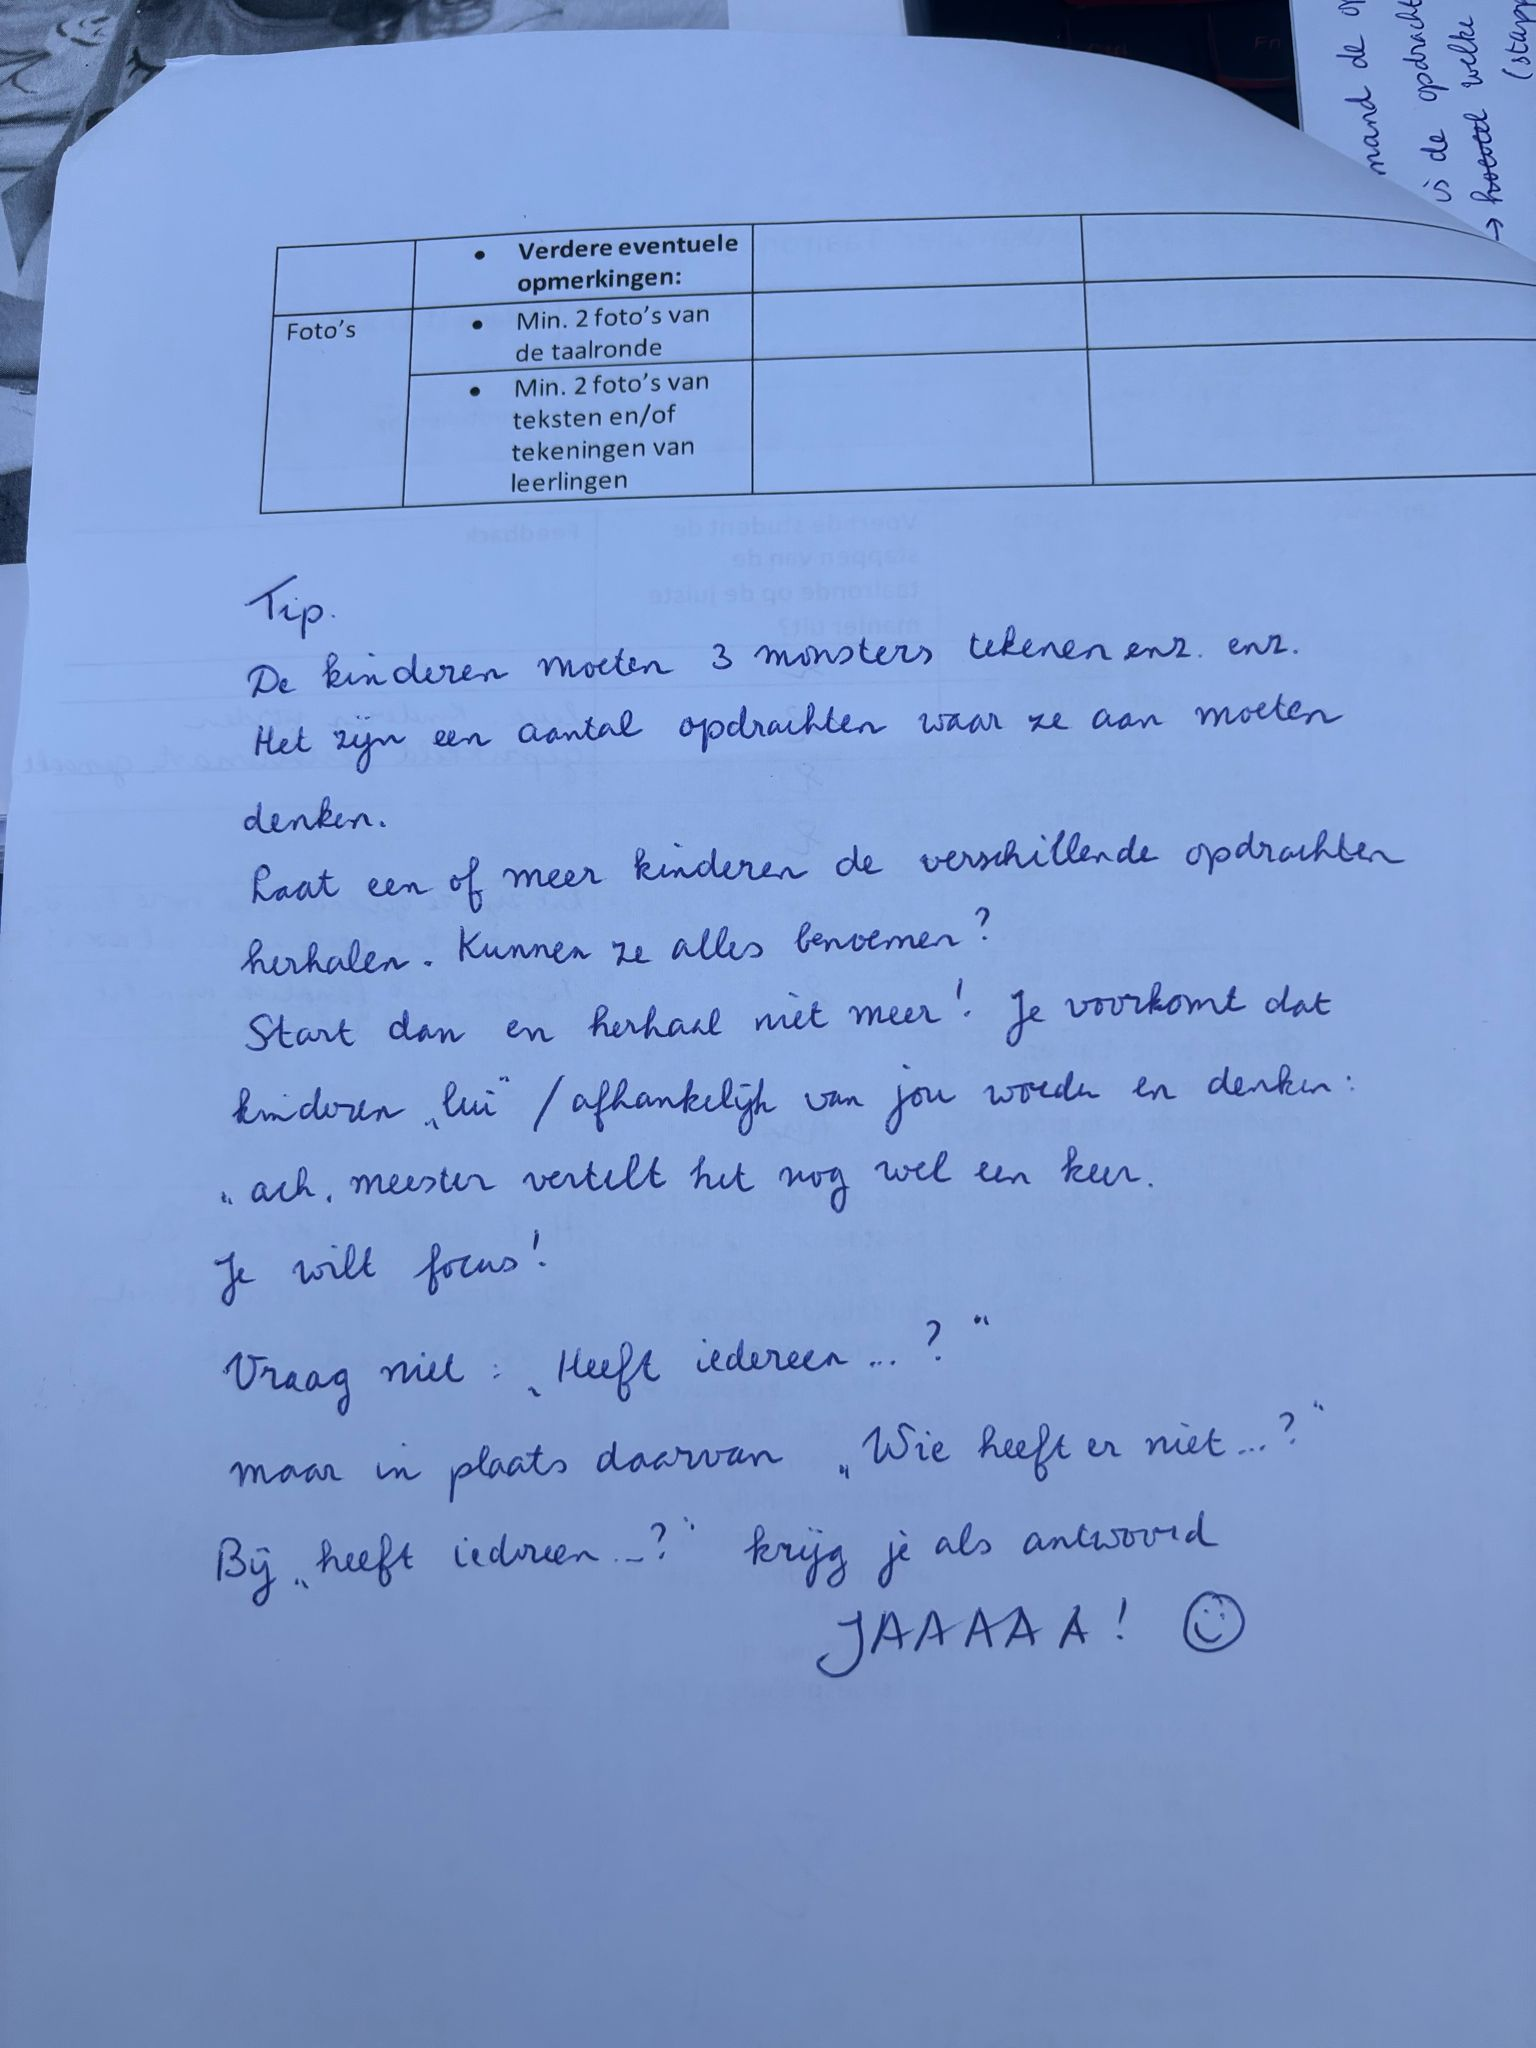 mand de
is de opdracht
→ welke
• Verdere eventuele
opmerkingen:
Foto's
• Min. 2 foto's van
de taalronde
• Min. 2 foto's van
teksten en/of
tekeningen van
leerlingen
Tip.
De kinderen moeten 3 monsters tekenen enz. enz.
Het zijn een aantal opdrachten waar ze aan moeten
denken.
Laat een of meer kinderen de verschillende opdrachten
herhalen. Kunnen ze alles benoemen?
Start dan en herhaal niet meer! Je voorkomt dat
kinderen „lui" / afhankelijk van jou worden en denken:
„ach, meester vertelt het nog wel een keer.
Je wilt focus!
Vraag niet: „Heeft iedereen ...?"
maar in plaats daarvan „Wie heeft er niet ...?"
Bij „heeft iedereen ...?" krijg je als antwoord
JAAAAA! ☺